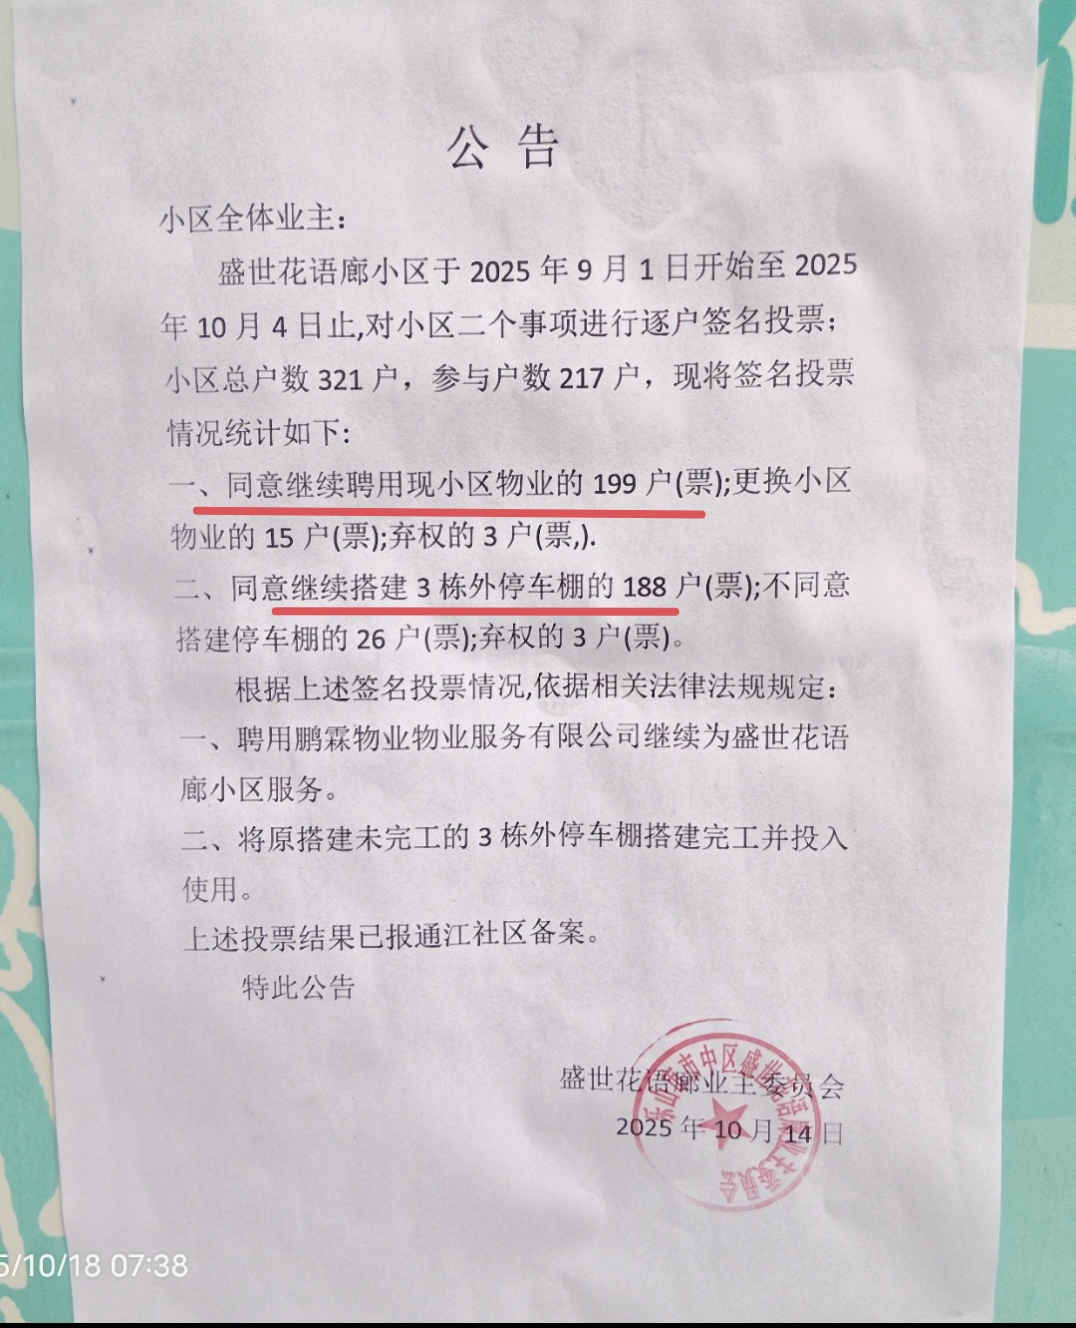 公 告
小区全体业主：
盛世花语廊小区于 2025 年 9 月 1 日开始至 2025
年 10 月 4 日止,对小区二个事项进行逐户签名投票；
小区总户数 321 户，参与户数 217 户，现将签名投票
情况统计如下:
一、同意继续聘用现小区物业的 199 户(票);更换小区
物业的 15 户(票);弃权的 3 户(票,).
二、同意继续搭建 3 栋外停车棚的 188 户(票);不同意
搭建停车棚的 26 户(票);弃权的 3 户(票)。
根据上述签名投票情况,依据相关法律法规规定：
一、聘用鹏霖物业物业服务有限公司继续为盛世花语
廊小区服务。
二、将原搭建未完工的 3 栋外停车棚搭建完工并投入
使用。
上述投票结果已报通江社区备案。
特此公告
盛世花语廊业主委员会
2025 年 10 月 14 日
乐山市市中区盛世花语廊业主委员会
5/10/18 07:38